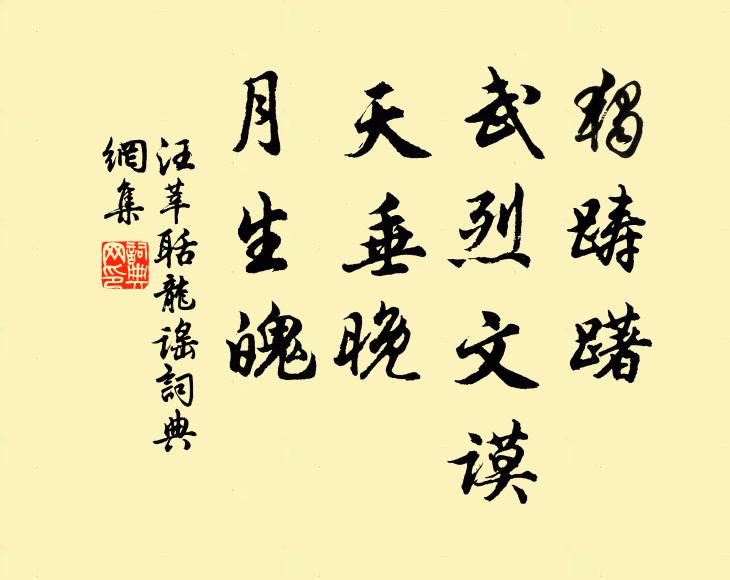 獨踌躇
武烈文谟
天垂晚
月生魄
汪莘聒龍謠詞典
網集
詞典
网印